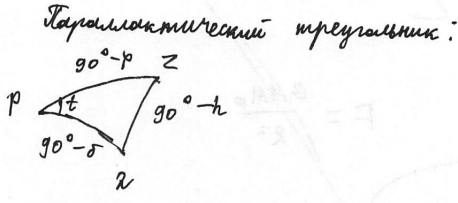 Параллактический треугольник:
90°-φ Z
P t 90°-h
90°-δ
λ